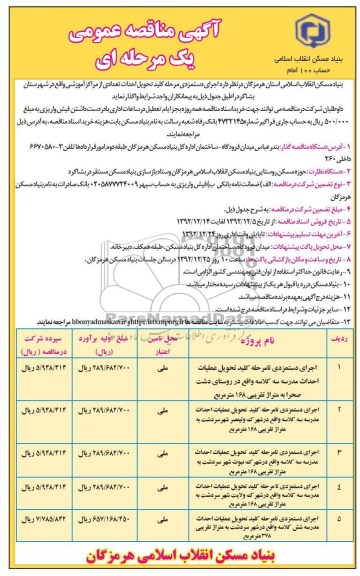 آگهی مناقصه عمومی
یک مرحله ای
بنیاد مسکن انقلاب اسلامی
حساب ۱۰۰ امام
بنیاد مسکن انقلاب اسلامی استان هرمزگان در نظر دارد اجرای دستمزدی مرحله کلید تحویل احداث تعدادی از مراکز آموزشی واقع در شهرستان
بشاگرد از طریق جدول ذیل به پیمانکاران واجد شرایط واگذار نماید
داوطلبان شرکت در مناقصه می توانند جهت خرید اسناد مناقصه همه روزه بجز ایام تعطیل در ساعات اداری با در دست داشتن فیش واریزی به مبلغ
۵۰۰/۰۰۰ ریال به حساب جاری فراگیر شماره بانک رفاه شعبه رسالت به نام بنیاد مسکن بابت هزینه خرید اسناد مناقصه، به آدرس ذیل
مراجعه نمایند.
۱- آدرس دستگاه مناقصه گذار: بندرعباس میدان فرودگاه - ساختمان اداره کل بنیاد مسکن هرمزگان طبقه دوم امور قراردادها تلفن ۳-۶۶۷۰۵۸۰
داخلی ۲۶۰
۲- دستگاه نظارت: حوزه مسکن روستایی بنیاد مسکن انقلاب اسلامی هرمزگان و ستاد بازسازی بنیاد مسکن مستقر در بشاگرد
۳- نوع تضمین شرکت در مناقصه: الف) ضمانت نامه بانکی ب) فیش واریزی به حساب سپهر بانک صادرات به نام بنیاد مسکن
هرمزگان
۴- مبلغ تضمین شرکت در مناقصه: به شرح جدول ذیل.
۵- تاریخ فروش اسناد مناقصه: از تاریخ ۱۳۹۲/۱۲/۵ لغایت ۱۳۹۲/۱۲/۱۴
۶- آخرین مهلت تسلیم پیشنهادات: تا پایان وقت اداری روز ۱۳۹۲/۱۲/۲۴
۷- محل تحویل پاکت پیشنهادات: میدان فرودگاه ساختمان اداره کل بنیاد مسکن، طبقه همکف، دبیرخانه.
۸- تاریخ و ساعت و مکان بازگشائی پاکت ها: ساعت ۱۰ روز ۱۳۹۲/۱۲/۲۵ در سالن جلسات بنیاد مسکن هرمزگان.
۹- رعایت قانون حداکثر استفاده از توان فنی و مهندسی کشور الزامی است.
۱۰- بنیاد مسکن در رد یا قبول هر یک از پیشنهادات رسیده مختار می باشد.
۱۱- هزینه درج آگهی بعهده برنده مناقصه می باشد.
۱۲- سایر جزئیات و شرایط در اسناد مناقصه درج شده است.
۱۳- متقاضیان می توانند جهت کسب اطلاعات بیشتر به سایت مناقصه ها مراجعه نمایند
ردیف نام پروژه محل تامین اعتبار مبلغ اولیه برآورد (ریال) سپرده شرکت در مناقصه (ریال)
۱ اجرای دستمزدی تامرحله کلید تحویل عملیات احداث مدرسه سه کلاسه واقع در روستای دشت صحرا به متراژ تقریبی ۱۶۸ مترمربع ملی ۲۸۹/۶۸۲/۷۰۰ ریال ۵/۹۴۸/۴۱۴ ریال
۲ اجرای دستمزدی تامرحله کلید تحویل عملیات احداث مدرسه سه کلاسه واقع در شهرک ولیعصر شهر سردشت به متراژ تقریبی ۱۶۸ مترمربع ملی ۲۸۹/۶۸۲/۷۰۰ ریال ۵/۹۴۸/۴۱۴ ریال
۳ اجرای دستمزدی تامرحله کلید تحویل عملیات احداث مدرسه سه کلاسه واقع در شهرک نبوت شهر سردشت به متراژ تقریبی ۱۶۸ مترمربع ملی ۲۸۹/۶۸۲/۷۰۰ ریال ۵/۹۴۸/۴۱۴ ریال
۴ اجرای دستمزدی تامرحله کلید تحویل عملیات احداث مدرسه سه کلاسه واقع در شهرک ولایت شهر سردشت به متراژ تقریبی ۱۶۸ مترمربع ملی ۲۸۹/۶۸۲/۷۰۰ ریال ۵/۹۴۸/۴۱۴ ریال
۵ اجرای دستمزدی تامرحله کلید تحویل عملیات احداث مدرسه شش کلاسه واقع در شهر سردشت به متراژ تقریبی ۳۷۸ مترمربع ملی ۶۵۷/۱۶۸/۲۵۰ ریال ۷/۷۸۵/۸۴۲ ریال
بنیاد مسکن انقلاب اسلامی هرمزگان